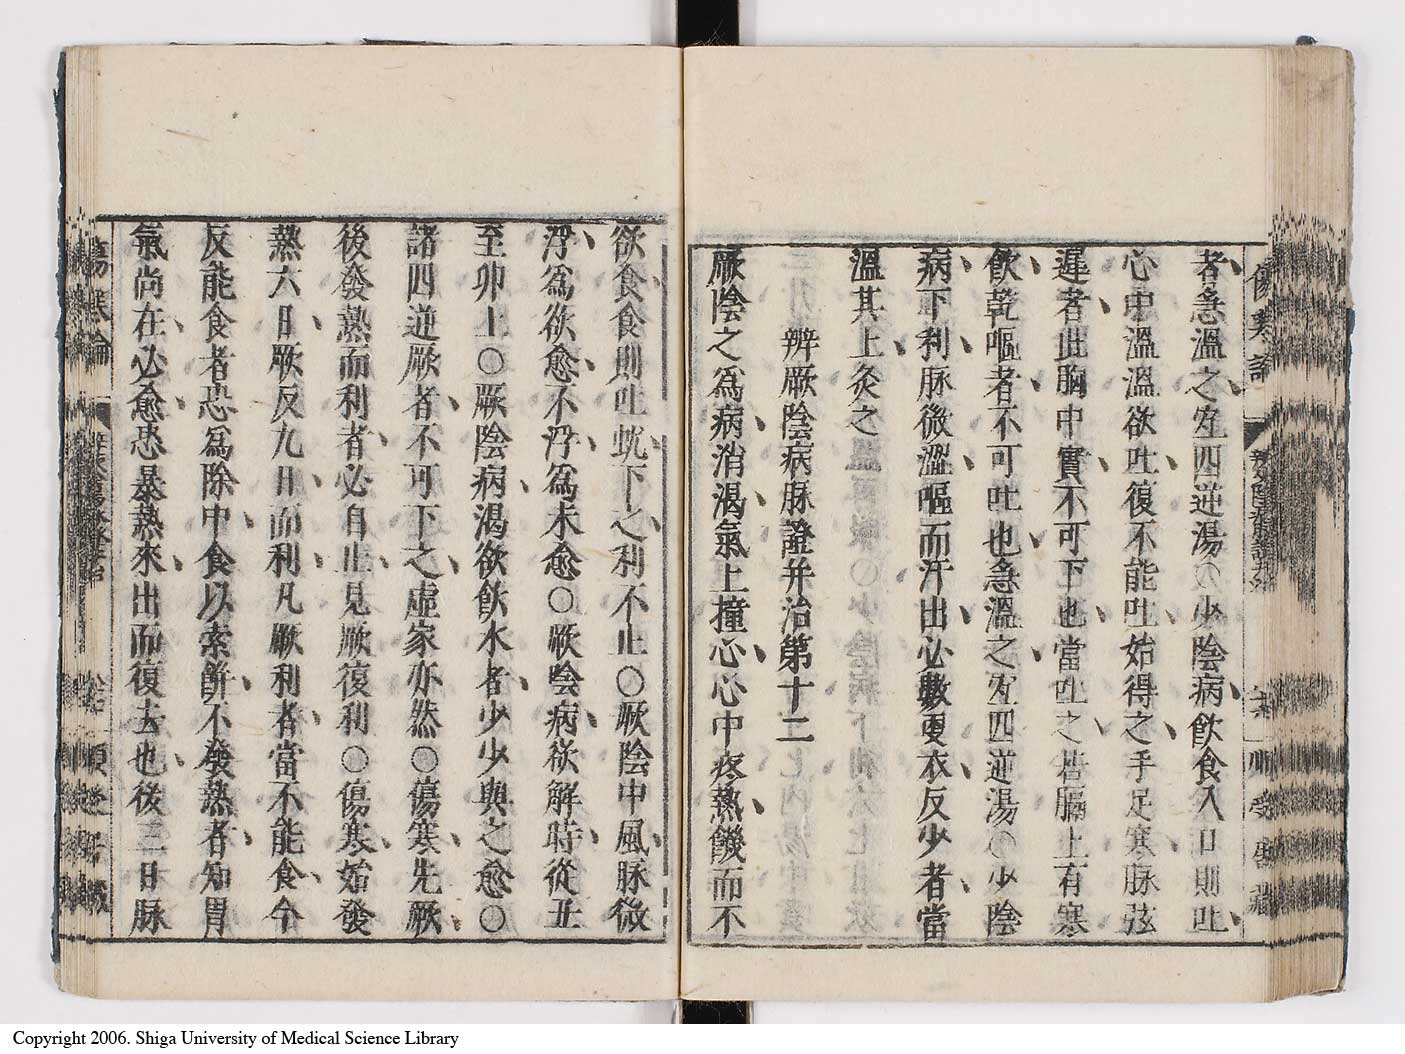 者急溫之宐四逆湯○少陰病飮食入口則吐
心中溫溫欲吐復不能吐始得之手足寒脉弦
遲者此胸中實不可下也當吐之若膈上有寒
飮乾嘔者不可吐也急溫之宐四逆湯○少陰
病下利脉微澀嘔而汗出必數更衣反少者當
溫其上灸之
辨厥陰病脉證并治第十二
厥陰之爲病消渴氣上撞心心中疼熱饑而不
欲食食則吐蚘下之利不止○厥陰中風脉微
浮爲欲愈不浮爲未愈○厥陰病欲解時從丑
至卯上○厥陰病渴欲飮水者少少與之愈○
諸四逆厥者不可下之虛家亦然○傷寒先厥
後發熱而利者必自止見厥復利○傷寒始發
熱六日厥反九日而利凡厥利者當不能食今
反能食者恐爲除中食以索餅不發熱者知胃
氣尚在必愈恐暴熱來出而復去也後三日脉
Copyright 2006. Shiga University of Medical Science Library